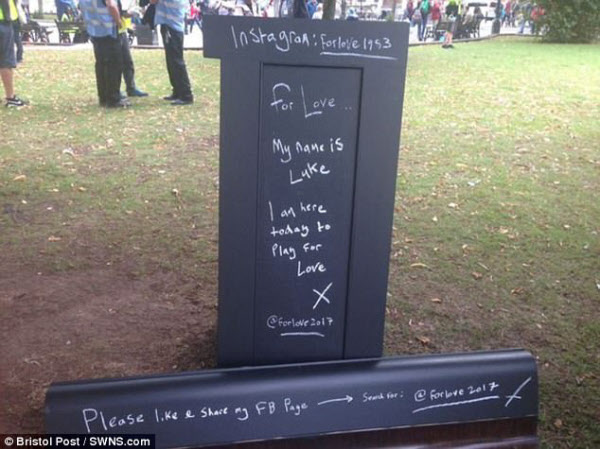 Instagram: forlove1953
For Love...
My name is
Luke
I am here
today to
Play for
Love
X
@forlove2017
Please like & share my FB Page → Search for: @forlove2017 X
© Bristol Post / SWNS.com